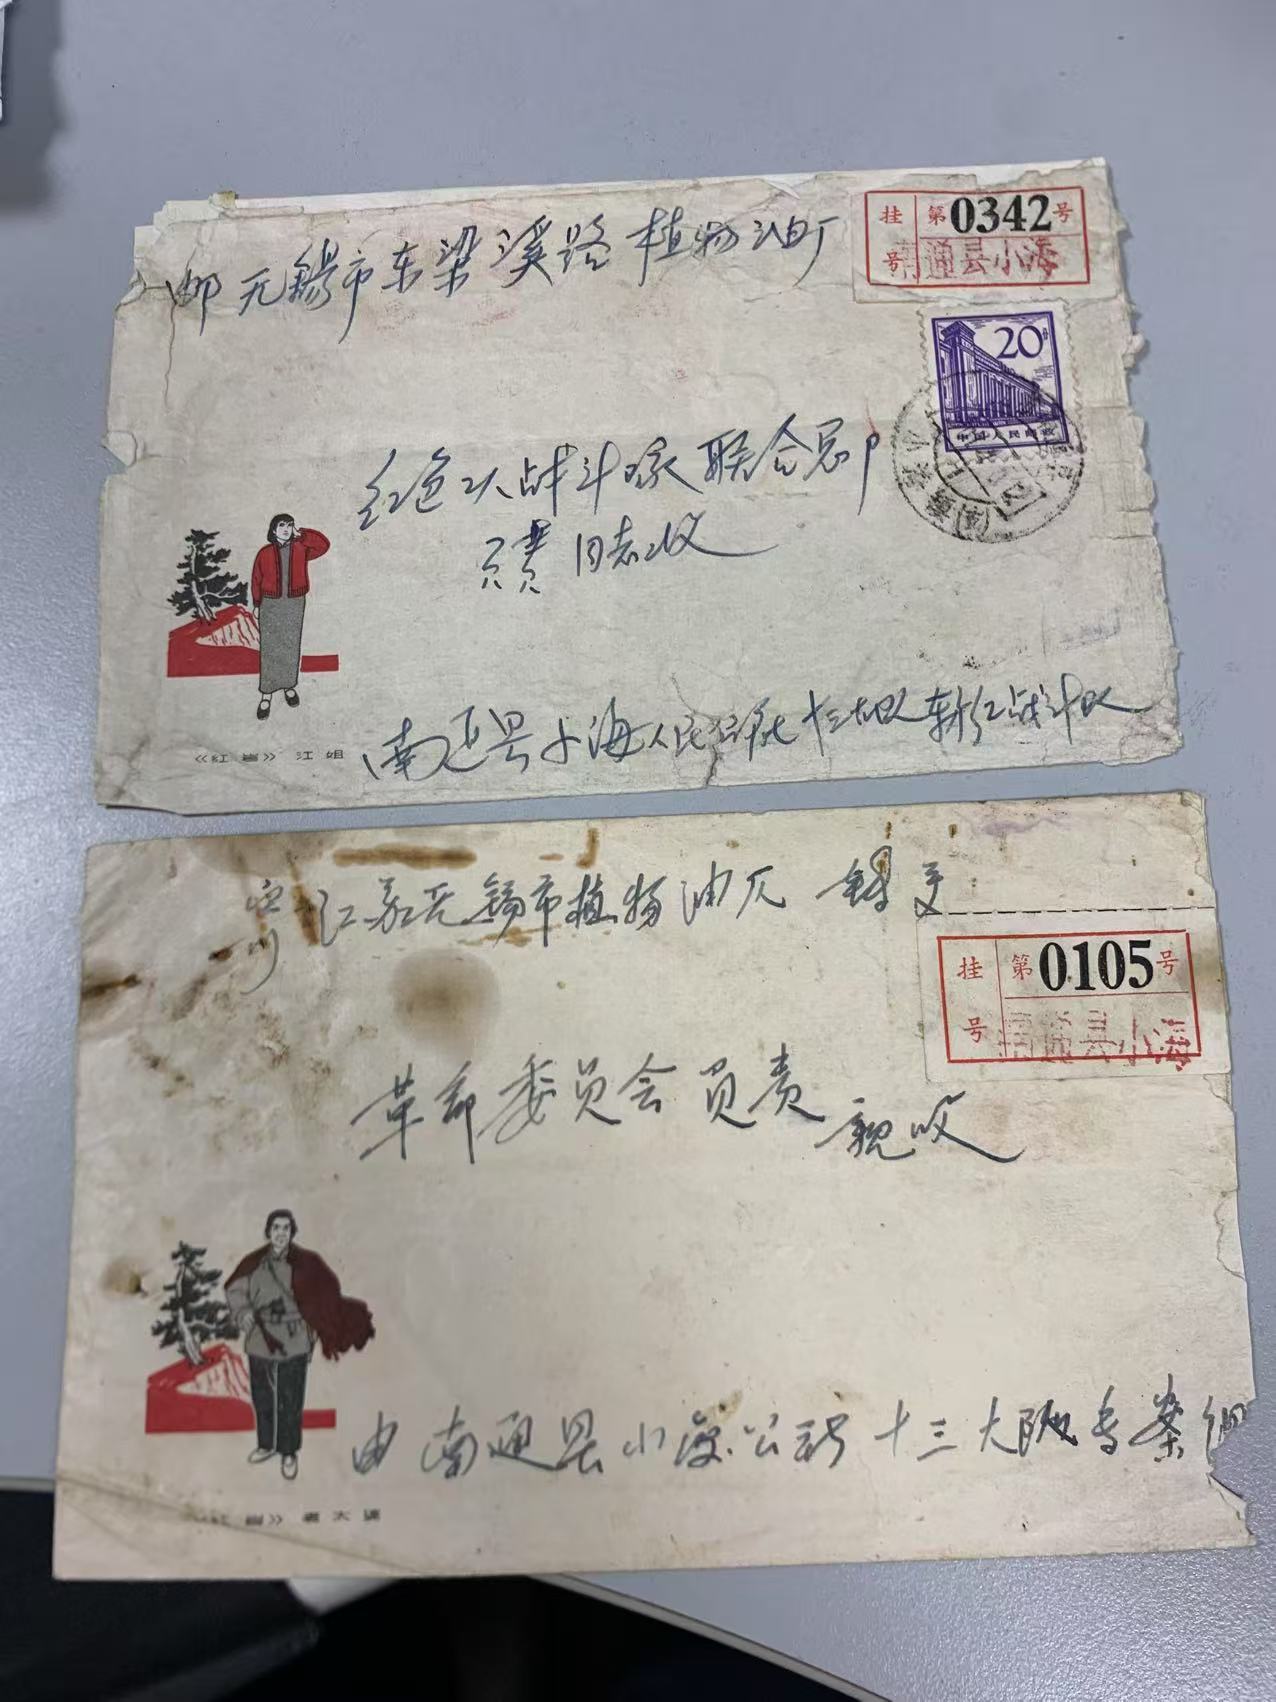 挂号 第0342号
南通县小海
邮 无锡市东梁溪路植物油厂
20分
中国人民邮政
红色 战斗 联合总部
同志收
《红岩》 江姐
南通县小海人民公社十三大队 红战斗队
江苏无锡市植物油厂
挂号 第0105号
南通县小海
革命委员会 员责
亲收
由南通县小海公社十三大队专案组
《红岩》 老大哥